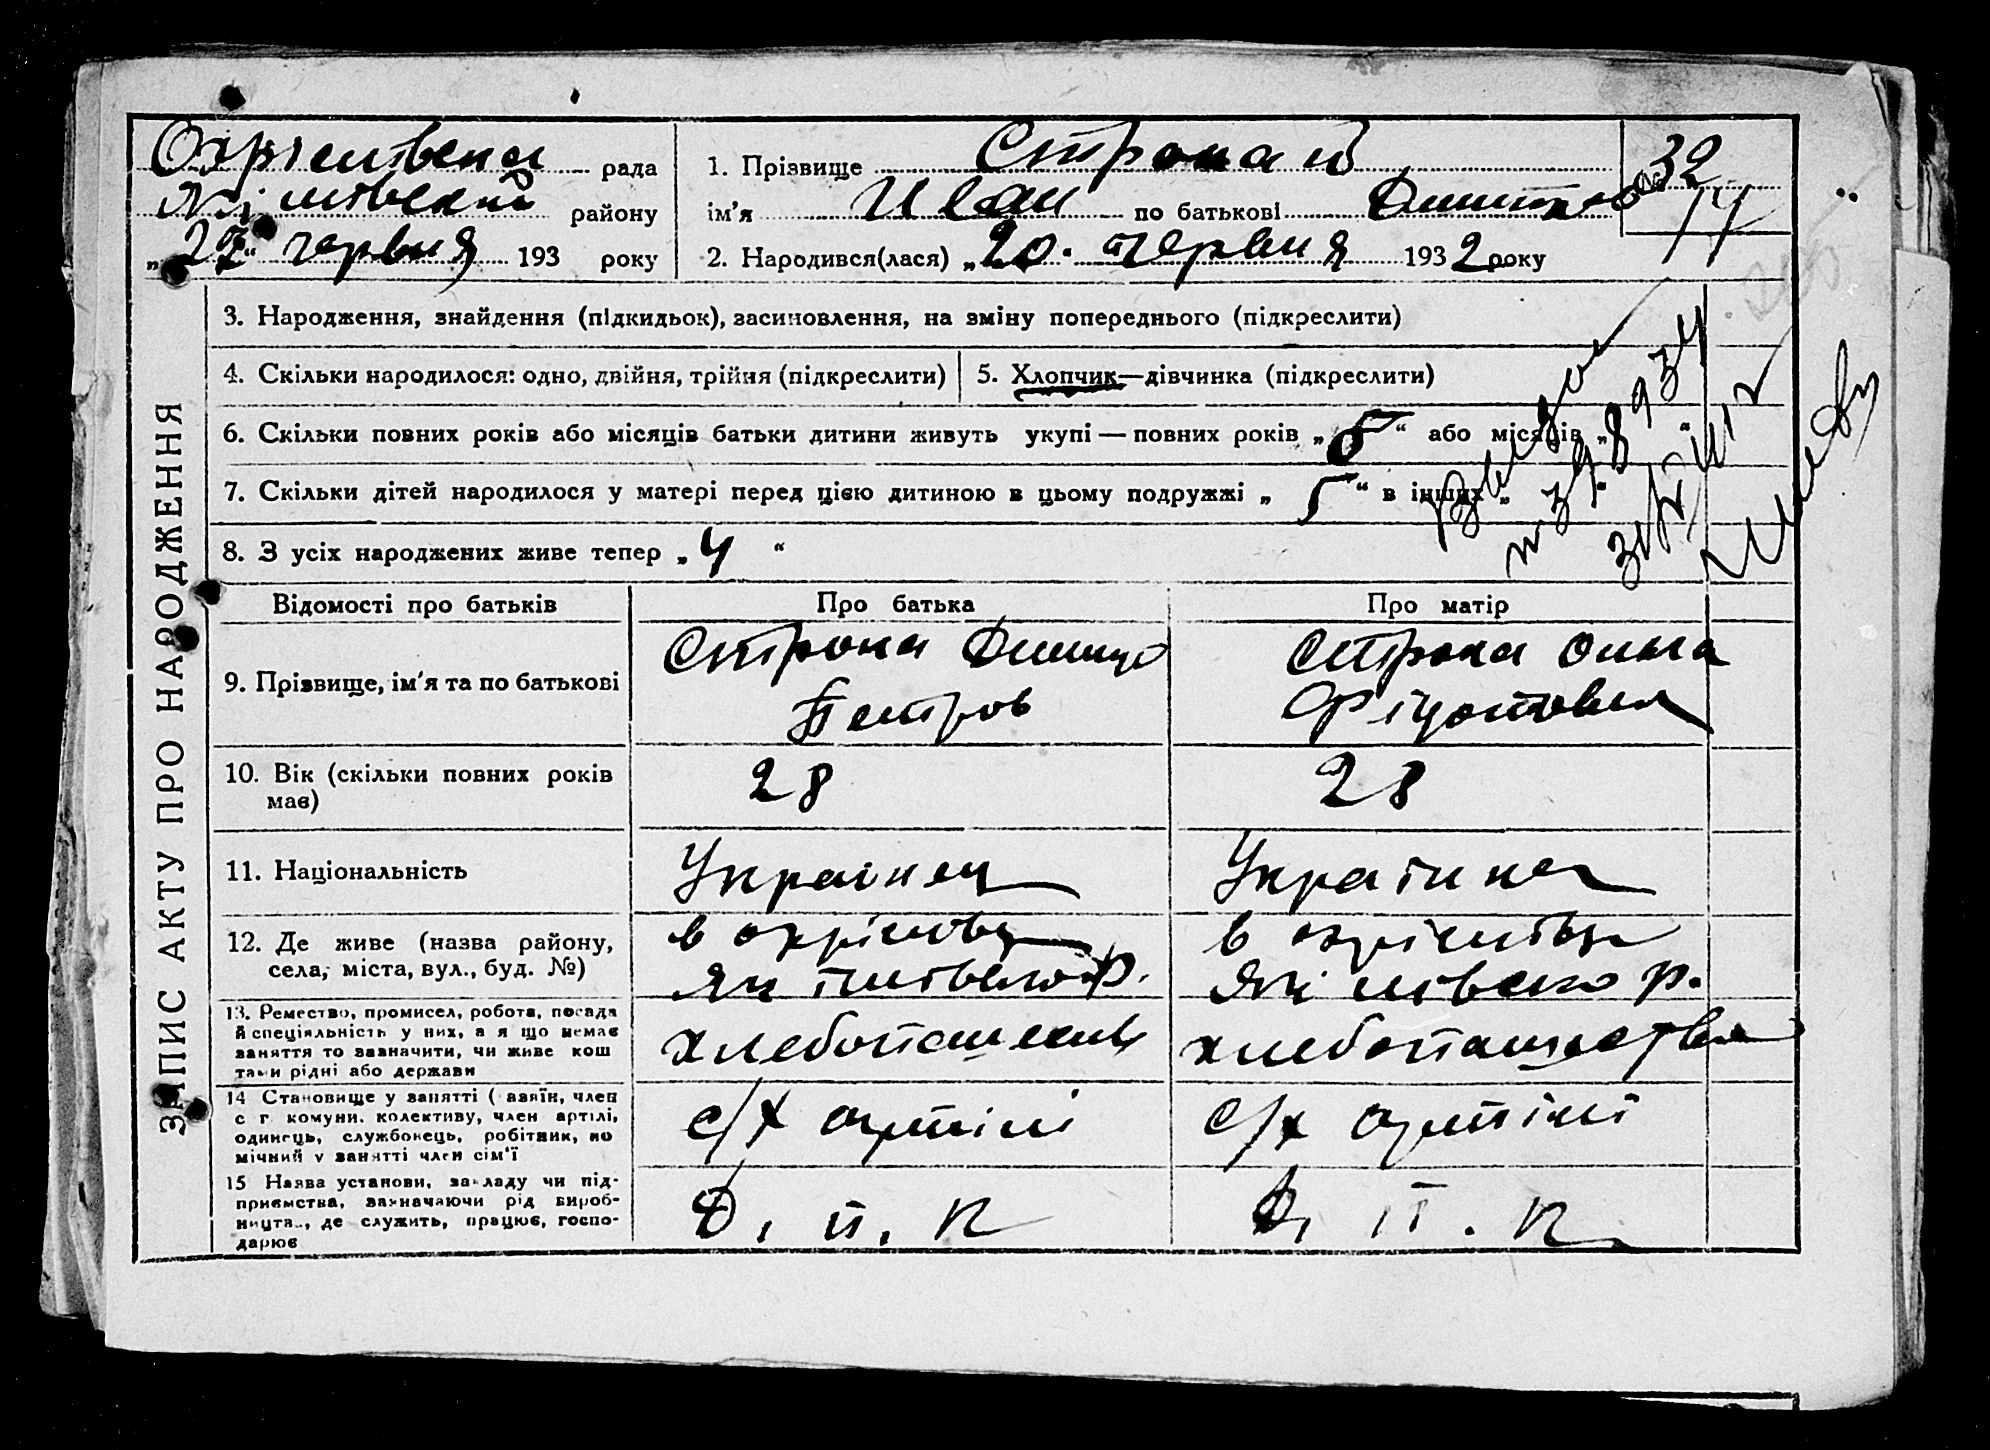 Охрімівська рада
Якимівський району
„27“ червня 193 року
1. Прізвище Строкай
ім’я Иван по батькові Дмитров
2. Народився(лася) „20. червня 1932 року
№ 32
3. Народження, знайдення (підкидьок), засиновлення, на зміну попереднього (підкреслити)
4. Скільки народилося: одно, двійня, трійня (підкреслити)
5. Хлопчик—дівчинка (підкреслити)
6. Скільки повних років або місяців батьки дитини живуть укупі — повних років „ “ або місяців „ “
7. Скільки дітей народилося у матері перед цією дитиною в цьому подружжі „5“ в інших „ “
8. З усіх народжених живе тепер „4“
ЗАПИС АКТУ ПРО НАРОДЖЕННЯ
Відомості про батьків
Про батька
Про матір
9. Прізвище, ім’я та по батькові
Строка
Петров
Строка Ольга
10. Вік (скільки повних років
має)
28
28
11. Національність
Українец
Українка
12. Де живе (назва району,
села, міста, вул., буд. №)
в Охрімівці
р.
в Охрімівці
р.
13. Ремество, промисел, робота, посада
й спеціяльність у них, а я що немає
заняття то зазначити, чи живе кош
тами рідні або держави
хлебопашец
хлебопашество
14 Становище у занятті ( азяїн, член
с г комуни, колективу, член артілі,
одинець, службовець, робітник, по
мічний у занятті член сім’ї
с/х артілі
с/х артілі
15 Назва установи, закладу чи під-
приємства, зазначаючи рід вироб-
ництва, де служить, працює, госпо-
дарює
Д. п. к
Д. п. к